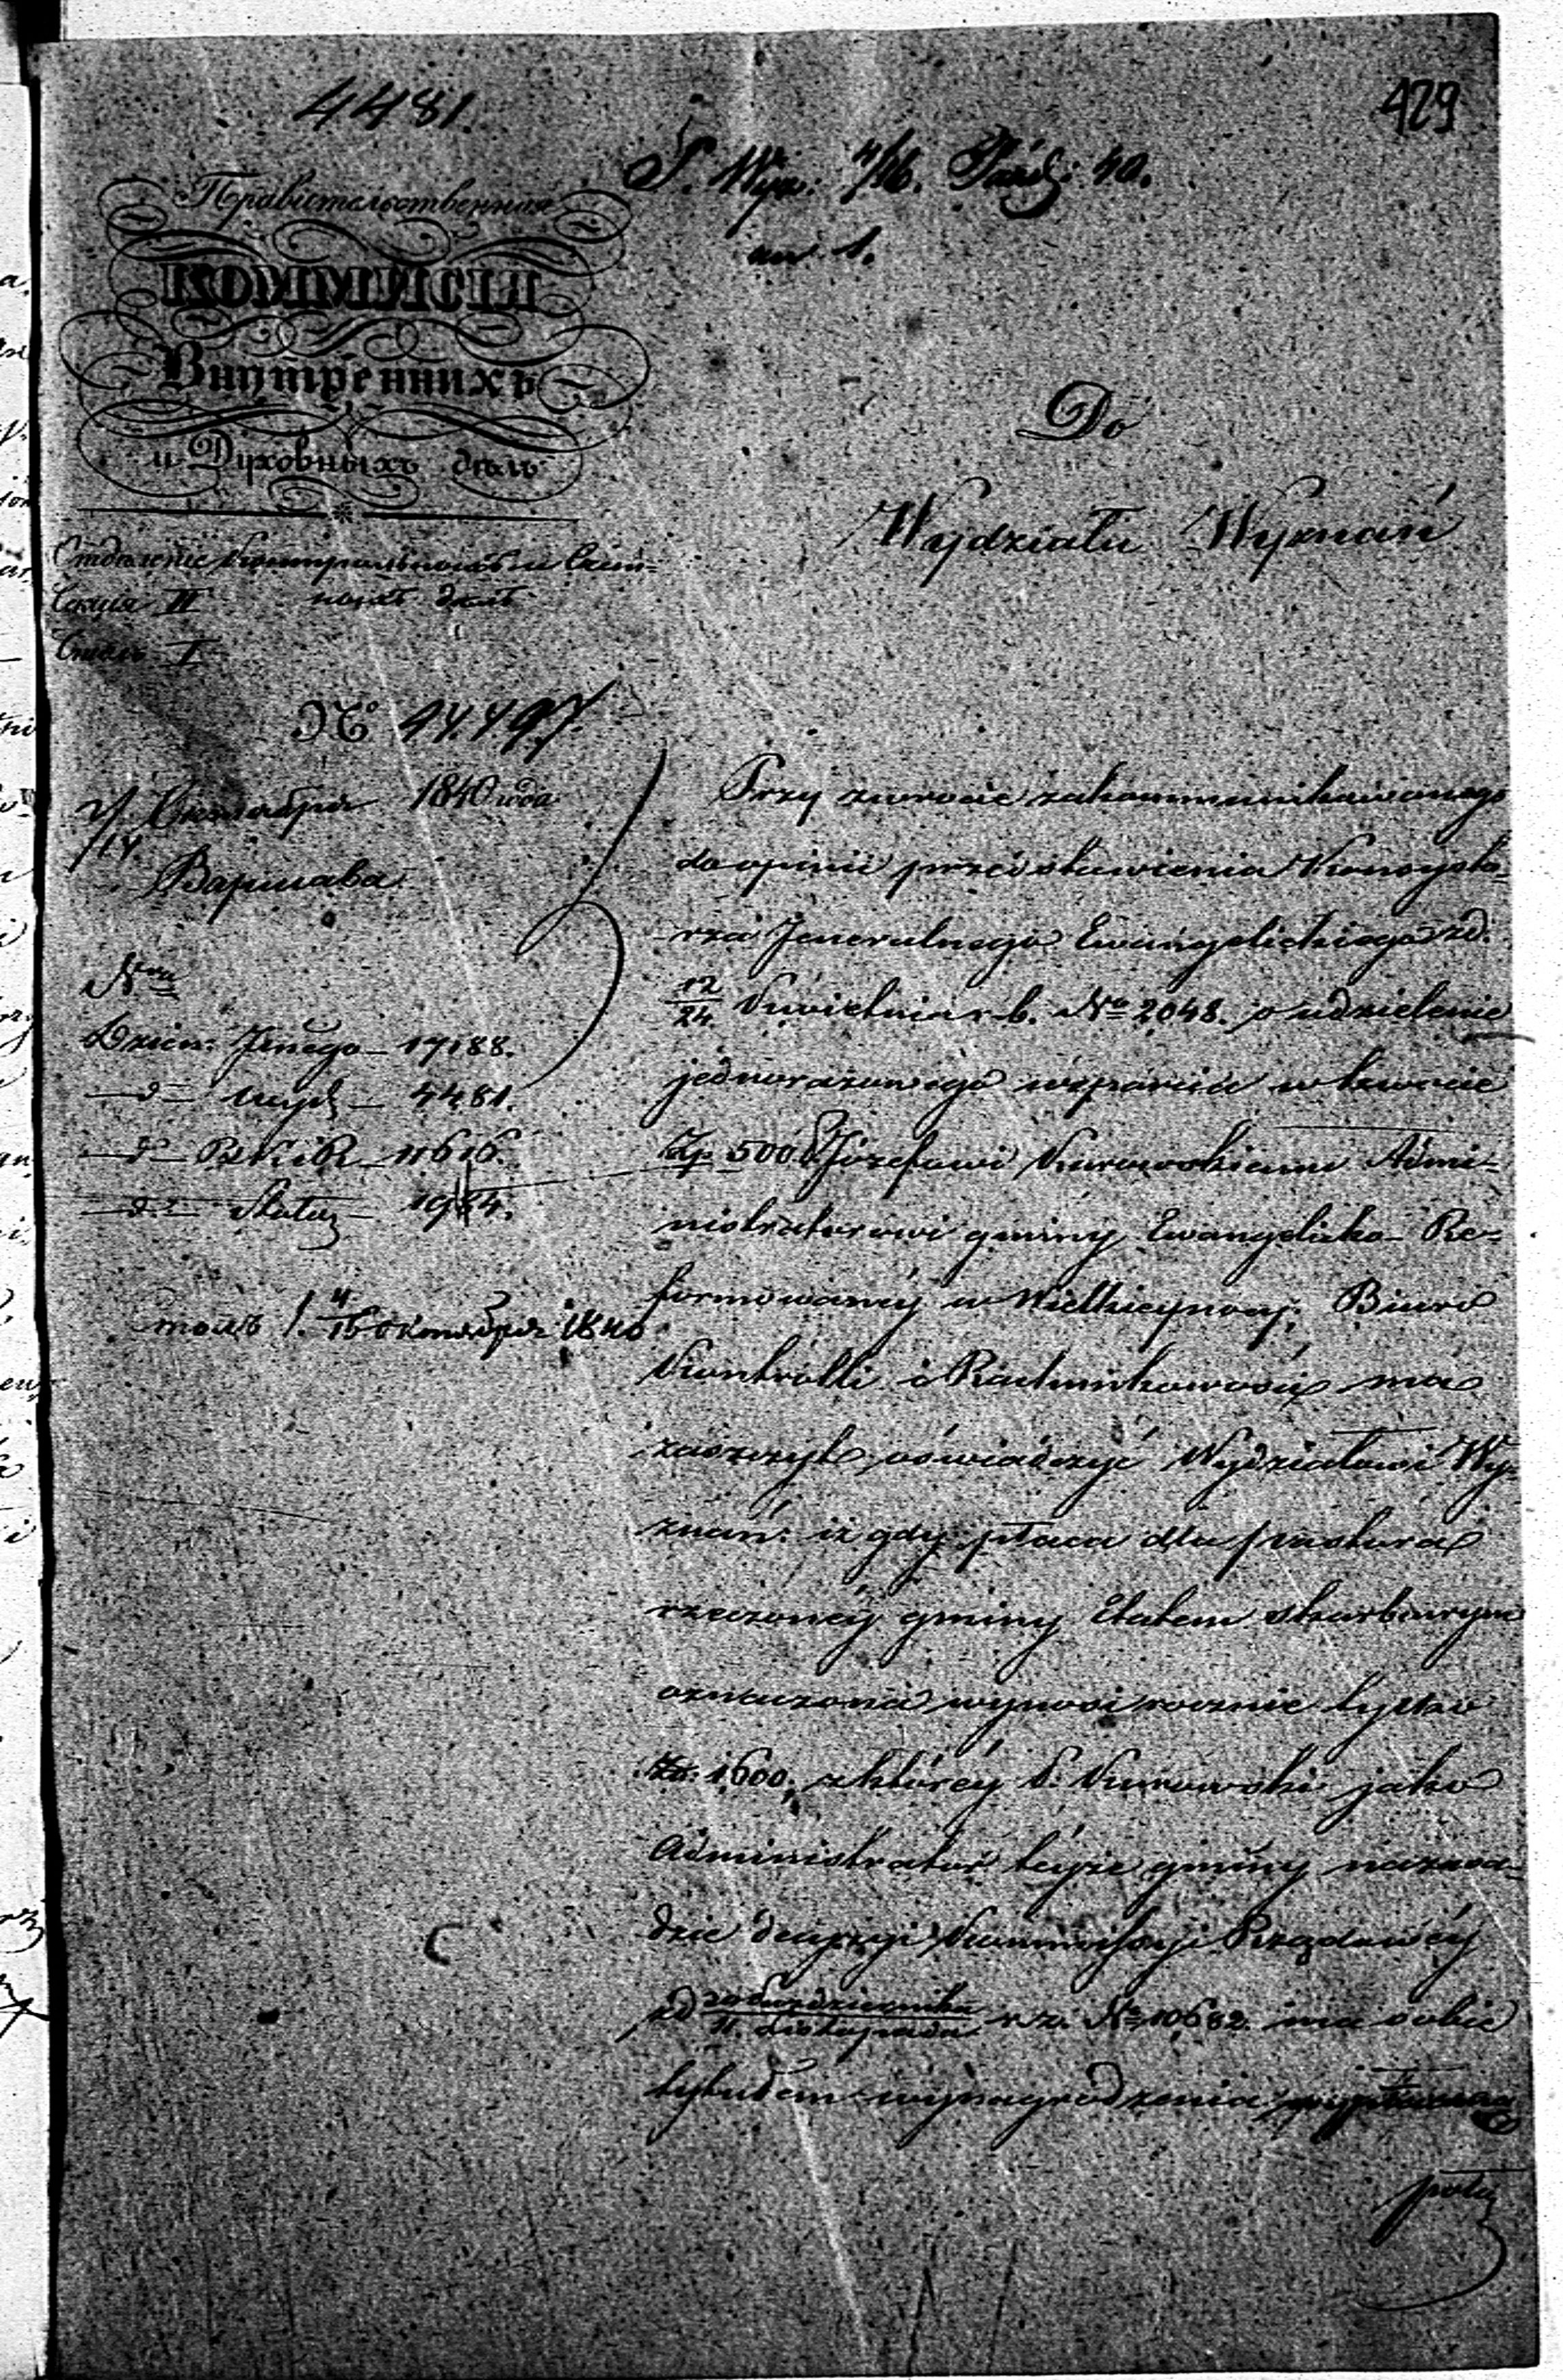 4481.
429
P. Wyz. 4/16. Paźdz: 40.
an 1.
Правительственная
КОММИСІЯ
Внутреннихъ
и Духовныхъ дѣлъ
Отдѣленіе Контрольныхъ и Счет=
ныхъ дѣлъ
Секція II
Столъ I
№ 14.497.
2/14 Октября 1840 года
Варшава
Do
Wydziału Wyznań
Nra
Dzien: Jnego – 17188.
– d – Wydz – 4481.
– d – BKiR – 11616.
– d – 1984.
столъ 1. 4/16 октября 1840
Przy zwrocie zakommunikowanego
do opinii przedstawienia Konsysto-
rza Jeneralnego Ewangelickiego z d.
12/24 Kwietnia r. b. No 2048. o udzielenie
jednorazowego wsparcia w kwocie
Zp. 500 Józefowi Kurowskiemu Admi-
nistratorowi gminy Ewangelicko-Re-
formowanéj w Wielkiejnocy, Biuro
Kontrolli i Rachunkowości ma
zaszczyt oświadczyć Wydziałowi Wy-
znań: iż gdy płaca dla pastora
rzeczonéj gminy Etatem skarbowym
oznaczona wynosi rocznie tylko
Zł: 1600, z któréj P. Kurowski jako
Administrator téjże gminy na zasa-
dzie decyzyi Kommissyi Rządowéj
z d 20 Października / 11. Listopada r. z. No 10682. ma sobie
tytułem wynagrodzenia